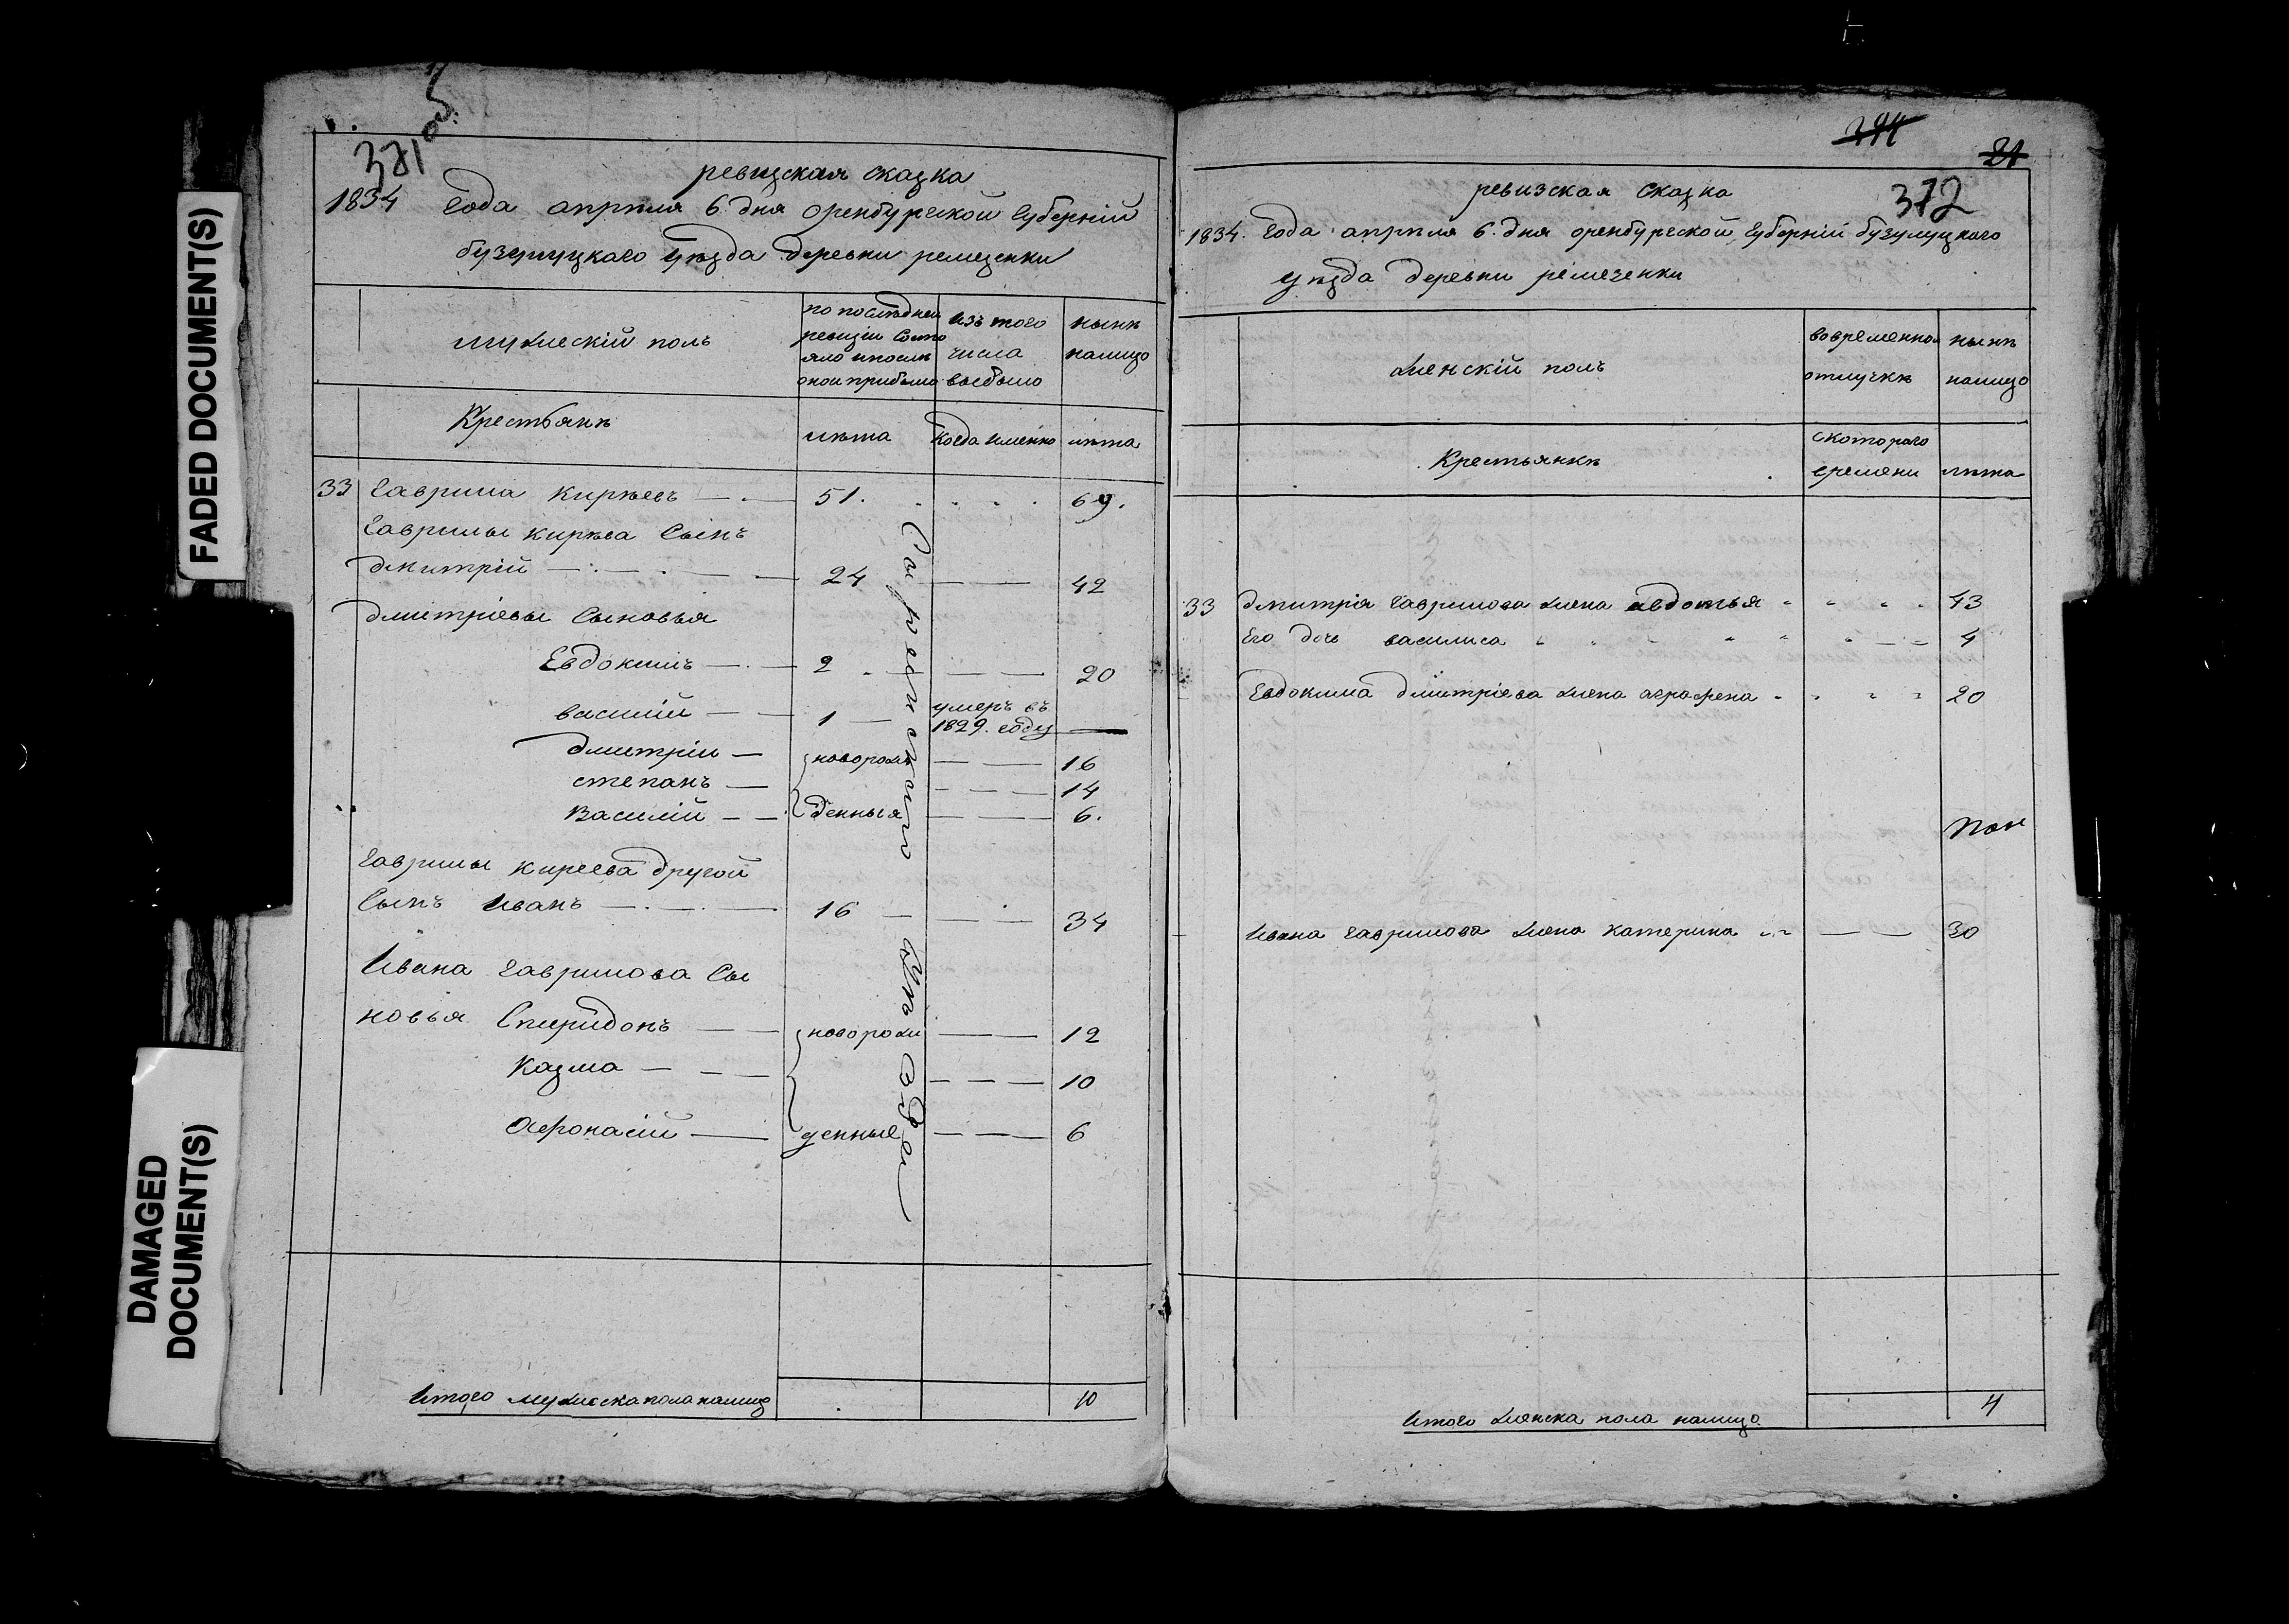 FADED DOCUMENT(S)
DAMAGED
DOCUMENT(S)
371 об.
ревизская сказка
1834 года апреля 6 дня оренбургской губерній
бузулуцкаго уѣзда деревни ремезенки
мужескій полъ
по послѣдней
ревизіи состо
яло и послѣ
оной прибыло
изъ того
числа
выбыло
нынѣ
налицо
Крестьянѣ
лѣта
когда именно
лѣта
33 Гаврила Кирѣевъ 51. 69.
Гаврилы Кирѣва сынъ
дмитрій 24 42
дмитріевы сыновья
Евдокимъ 2 20
василій 1 умеръ въ
1829. году
дмитріи новорож 16
степанъ 14
Василій денныя 6.
Гаврилы киреева другой
сынъ Иванъ 16 34
Ивана гаврилова сы
новья Спиридонъ новорож 12
Казма 10
Афонасій денные 6
Итого мужеска пола налицо 10
21
372
ревизская сказка
1834. года апрѣля 6. дня оренбургской губерній бузулуцкаго
уѣзда деревни ремезенки
женскій полъ
вовременной
отлучкѣ
нынѣ
налицо
Крестьянкѣ
скотораго
времени
лѣта
33 дмитрія гаврилова жена авдотья 43
Его дочь василиса 4
Евдокима дмитріева жена аграфена 20
Ивана гаврилова жена катерина 30
Итого женска пола налицо 4